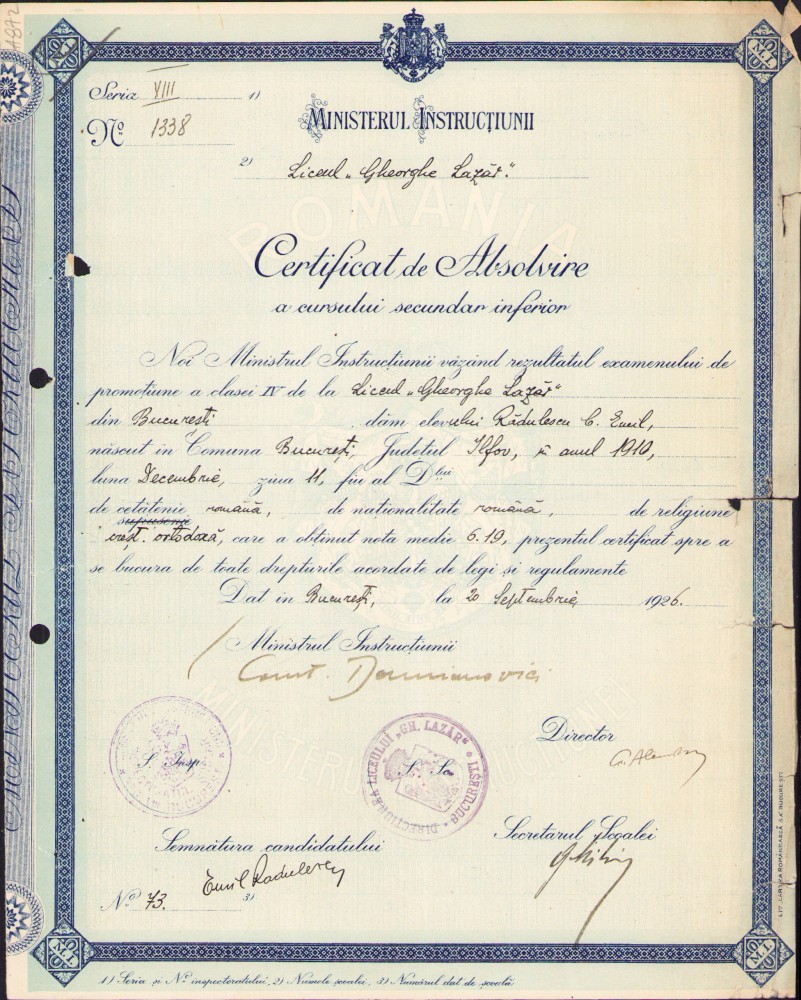 1872
M.I.
M.I.
Seria VIII 1)
No 1338
MINISTERUL INSTRUCȚIUNII
2) Liceul „Gheorghe Lazăr".
ROMANIA
Certificat de Absolvire
a cursului secundar inferior
Noi Ministrul Instrucțiunii văzând rezultatul examenului de
promoțiune a clasei IV de la Liceul „Gheorghe Lazăr"
din București dăm elevului Rădulescu C. Emil,
născut în Comuna București, Județul Ilfov, în anul 1910,
luna Decembrie, ziua 11, fiu al Dlui
de cetățenie română, de naționalitate română, de religiune
crești. ortodoxă, care a obținut nota medie 6.19, prezentul certificat spre a
se bucura de toate drepturile acordate de legi și regulamente
Dat în București, la 20 Septembrie, 1926.
Ministrul Instrucțiunii
MINISTERUL INSTRUCȚIUNEI
Director
S. Insp.
DIRECȚIUNEA LICEULUI „GH. LAZĂR" BUCUREȘTI
Semnătura candidatului
Secretarul Școalei
Emil Radulescu
No 73. 3)
M.I.
M.I.
1) Seria și No inspectoratului, 2) Numele școalei, 3) Numărul dat de școală
LIT. „CARTEA ROMÂNEASCĂ" S.A. BUCUREȘTI